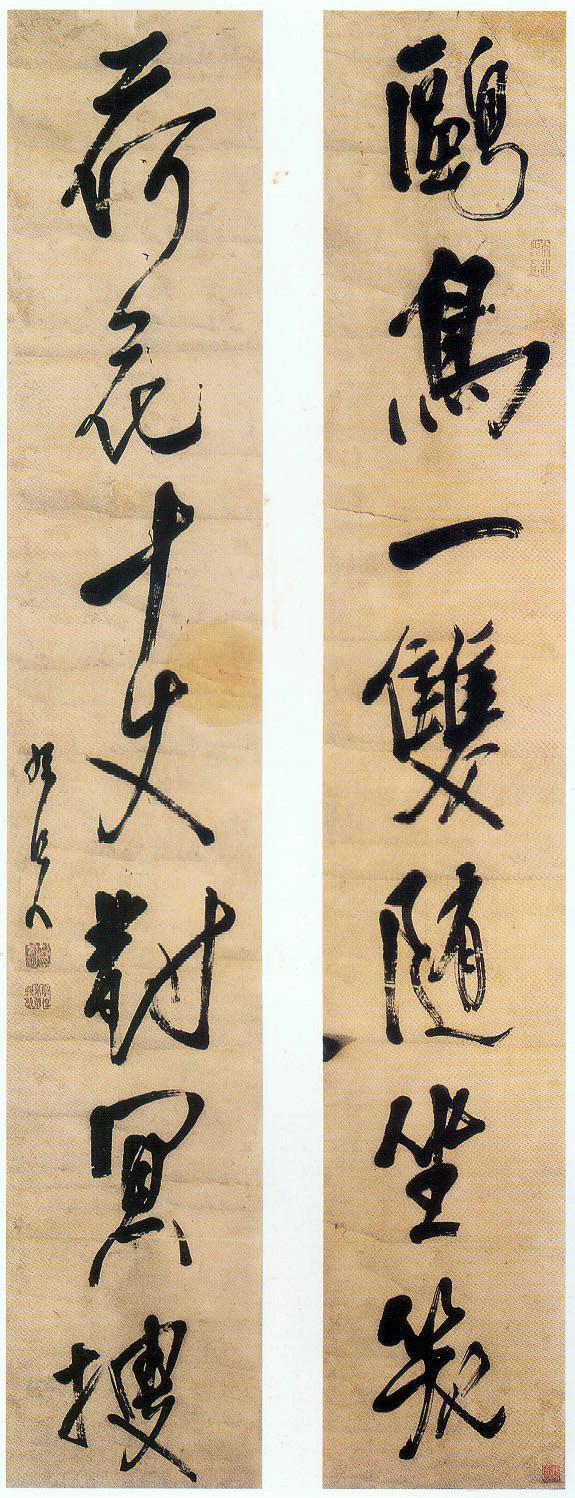 鷗鳥一雙隨坐笑
荷花十丈對冥搜